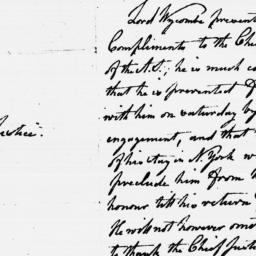 Lord Wycombe present
Compliments to the Chie
of the N.S.; he is much co
that he is prevented
with him on saturday by
engagement, and that
of his stay in N. York w
preclude him from
honour till his return
He will not however omi
to thank the Chief Justi
Justice.